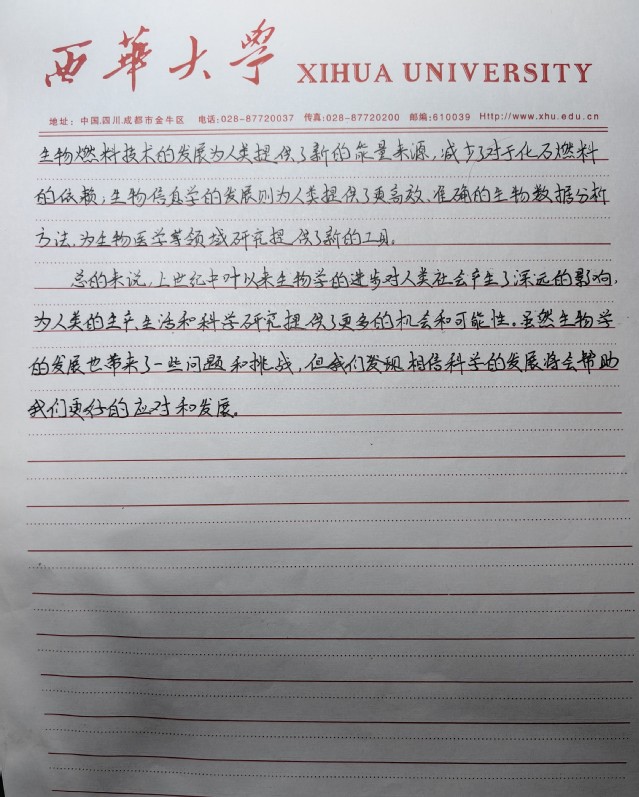 西華大學 XIHUA UNIVERSITY
地址：中国.四川.成都市金牛区 电话:028-87720037 传真:028-87720200 邮编:610039 Http://www.xhu.edu.cn
生物燃料技术的发展为人类提供了新的能量来源，减少了对于化石燃料
的依赖；生物信息学的发展则为人类提供了更高效、准确的生物数据分析
方法，为生物医学等领域研究提供了新的工具。
总的来说，上世纪中叶以来生物学的进步对人类社会产生了深远的影响，
为人类的生产、生活和科学研究提供了更多的机会和可能性。虽然生物学
的发展也带来了一些问题和挑战，但我们发现相信科学的发展将会帮助
我们更好的应对和发展。